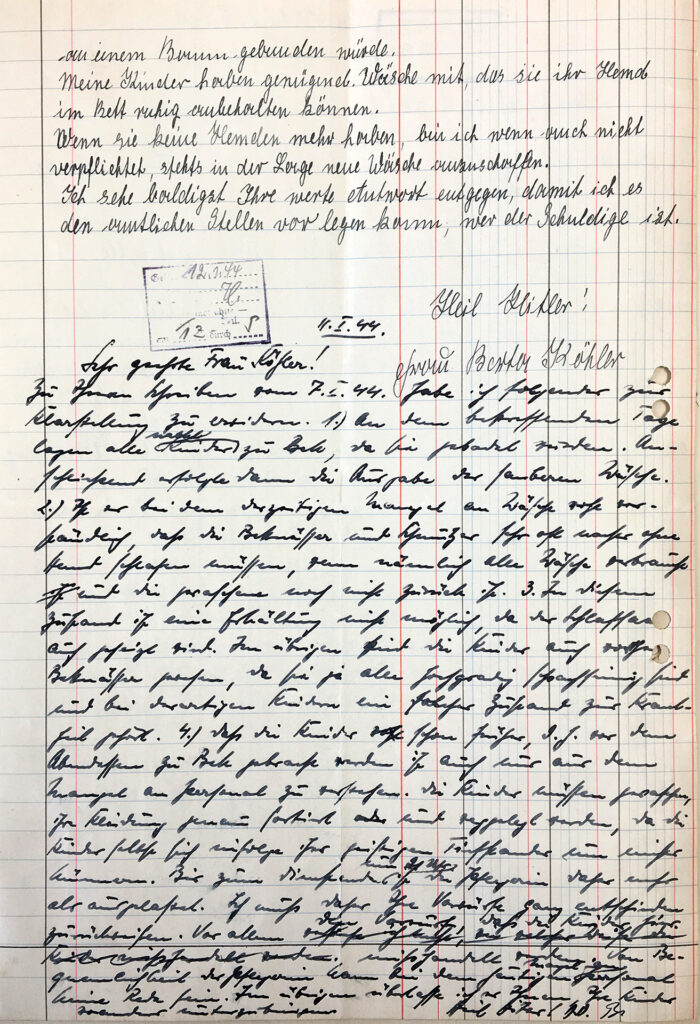 an einem Baum gebunden würde.
Meine Kinder haben genügend Wäsche mit, das sie ihr Hemd
im Bett ruhig anbehalten können.
Wenn sie keine Hemden mehr haben, bin ich wenn auch nicht
verpflichtet, stehts in der Lage neue Wäsche anzuschaffen.
Ich sehe baldigst Ihre werte Antwort entgegen, damit ich es
den amtlichen Stellen vor legen kann, wer der Schuldige ist.
12.1.44
Heil Hitler!
11.I.44.
Frau Berta Köhler
Sehr geehrte Frau Köhler!
Zu Ihrem Schreiben vom 7.I.44. habe ich folgendes zur
Klarstellung zu erwidern. 1.) An dem betreffenden Tage
lagen alle Kinder zu Bett, da sie gebadet wurden. An-
schliessend erfolgte dann die Ausgabe der sauberen Wäsche.
2.) Ist es bei dem derzeitigen Mangel an Wäsche wohl ver-
ständlich, dass die Bettnässer und Schmutzer sehr oft ohne
Hemd schlafen müssen, wenn nämlich alle Wäsche verbraucht
ist und die gewaschene noch nicht zurück ist. 3. In diesem
Zustand ist eine Erkältung nicht möglich, da der Schlafsaal
auch geheizt wird. Im übrigen sind die Kinder auch
Bettnässer gewesen, da sie ja alle hochgradig schwachsinnig sind
und bei derartigen Kindern ein solcher Zustand zur Krank-
heit gehört. 4.) dass die Kinder schon früher, d.h. vor dem
Abendessen zu Bett gebracht werden ist auch nur aus dem
Mangel an Personal zu verstehen. Die Kinder müssen gewaschen,
ihre Kleidung genau sortiert und weggelegt werden, da die
Kinder selbst sich infolge ihres geistigen Tiefstandes um nichts
kümmern. Bis zum ist die Pflegerin daher mehr
als ausgelastet. Ich muss daher Ihre Vorwürfe ganz entschieden
zurückweisen. Vor allem den Vorwurf, dass die Kinder
misshandelt werden. Von Be-
quemlichkeit der Pflegerin kann bei dem heutigen Personal
keine Rede sein. Im übrigen überlasse ich es Ihnen, Ihre Kinder
woanders unterzubringen
Heil Hitler!